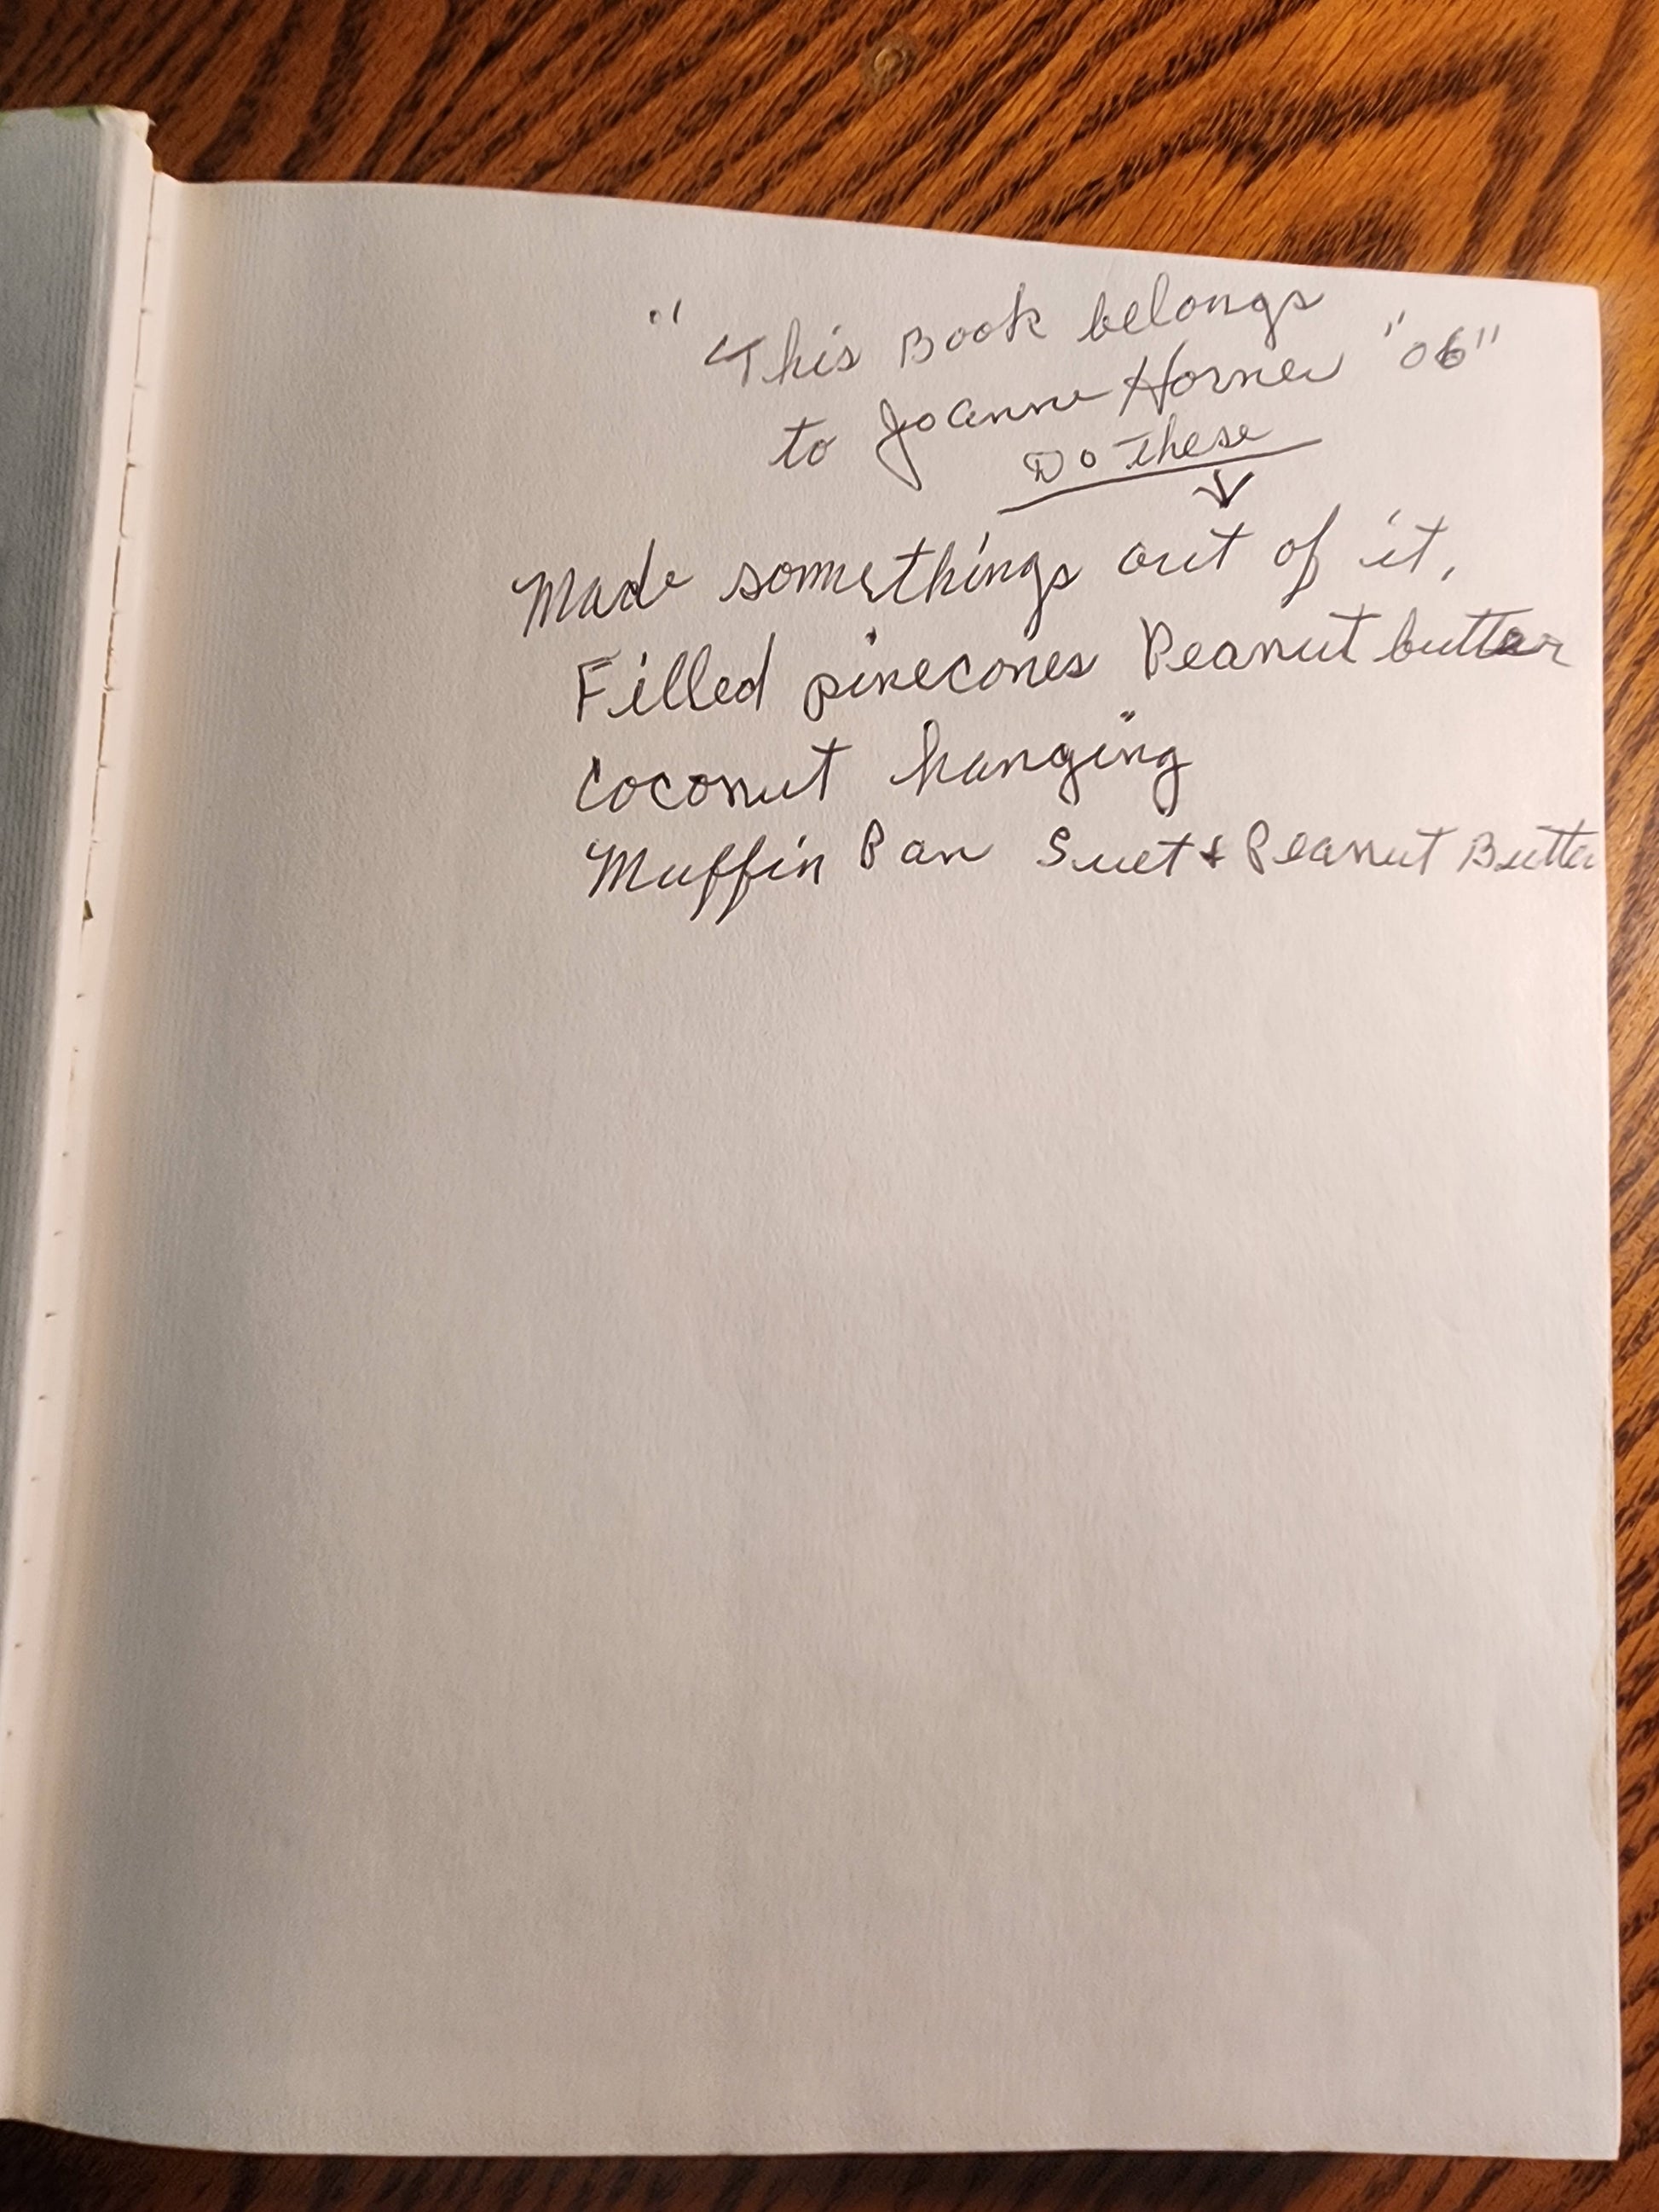 " This Book belongs
to Joanne Horner "06"
Do These
↓
Made somethings out of it,
Filled pinecones Peanut butter
Coconut hanging
Muffin Pan Suet & Peanut Butter